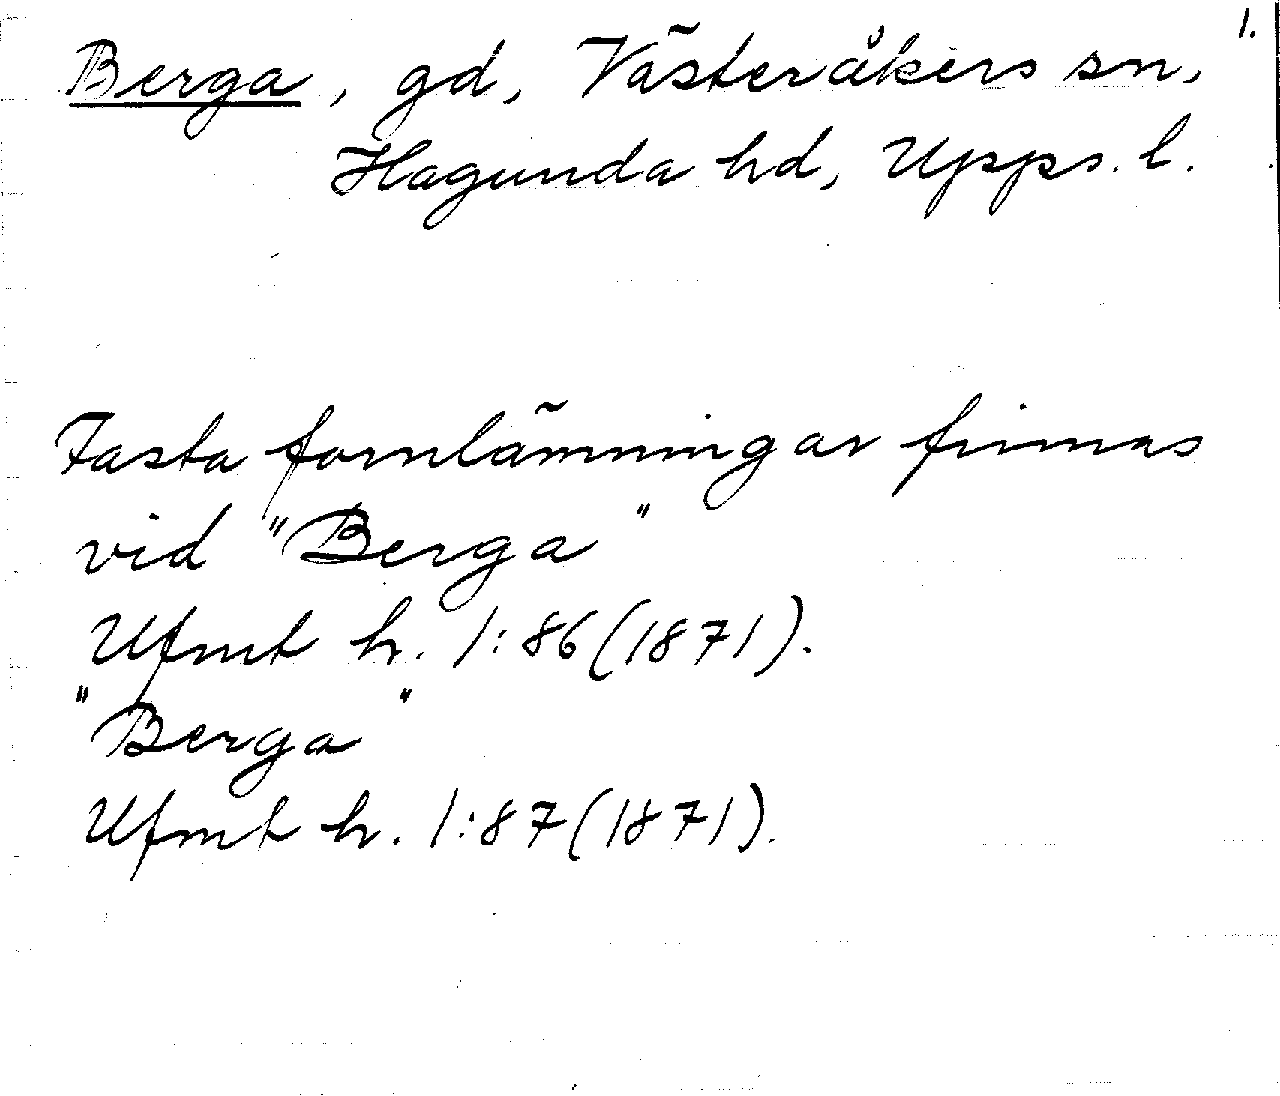 1.
Berga, gd, Västeråkers sn,
Hagunda hd, Upps. l.
Fasta fornlämningar finnas
vid "Berga"
Ufmt h. 1:86(1871).
"Berga"
Ufmt h. 1:87(1871).